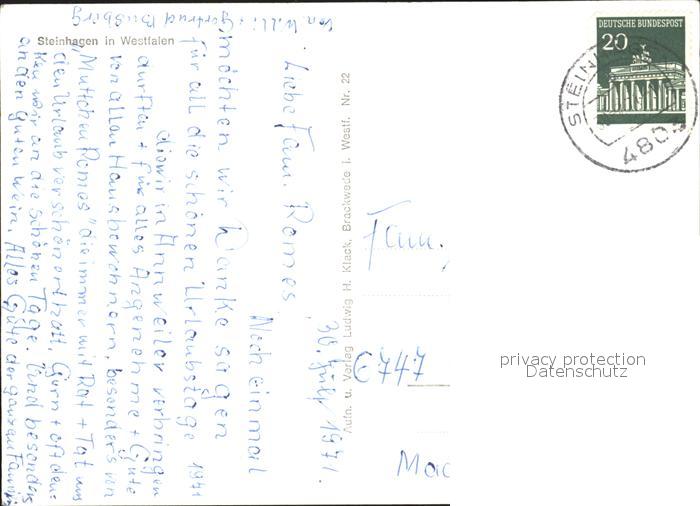 Steinhagen in Westfalen
30. July 1971.
Liebe Fam. Romes
Noch einmal
möchten wir Danke sagen
für all die schönen Urlaubstage 1971
die wir in Annweiler verbringen
durften + für alles Angenehme + Gute
von allen Hausbewohnern, besonders von
"Muttchen Romes" die immer mit Rat + Tat uns
den Urlaub verschönert hatt, Gern + oft den=
ken wir an die schönen Tage. Und besonders
an den guten Wein. Alles Gute der ganzen Familie
von Willi + Gertrud
Aufn. u. Verlag Ludwig H. Klack, Brackwede i. Westf. Nr. 22
DEUTSCHE BUNDESPOST
20
STEIN
4803
Fam.
6747
privacy protection
Datenschutz